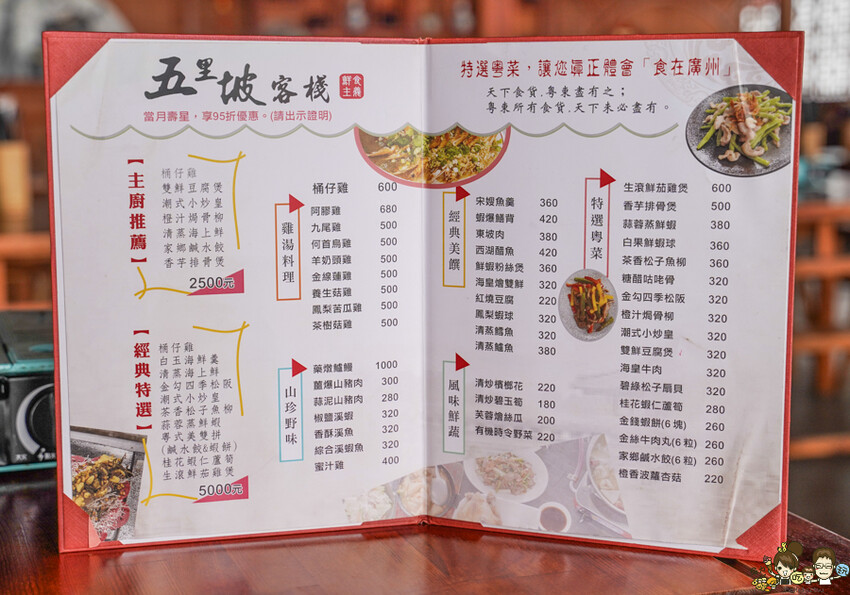 五里坡客棧
鮮食主義
當月壽星，享95折優惠。(請出示證明)
【主廚推薦】
桶仔雞
雙鮮豆腐煲
潮式小炒皇
橙汁焗骨柳
清蒸海上鮮
家鄉鹹水餃
香芋排骨煲
2500元
【經典特選】
桶仔雞
白玉海鮮羹
清蒸海上鮮
金勾四季松阪
潮式小炒皇
茶香松子魚柳
蒜蓉蒸鮮蝦
粵式美雙拼
(鹹水餃&蝦餅)
桂花蝦仁蘆筍
生滾鮮茄雞煲
5000元
雞湯料理
桶仔雞 600
阿膠雞 680
九尾雞 500
何首烏雞 500
羊奶頭雞 500
金線蓮雞 500
養生菇雞 500
鳳梨苦瓜雞 500
茶樹菇雞 500
山珍野味
藥燉鱸鰻 1000
薑爆山豬肉 300
蒜泥山豬肉 280
椒鹽溪蝦 320
香酥溪魚 320
綜合溪蝦魚 320
蜜汁雞 400
特選粵菜，讓您真正體會「食在廣州」
天下食貨．粵東盡有之；
粵東所有食貨．天下未必盡有。
經典美饌
宋嫂魚羹 360
蝦爆鱔背 420
東坡肉 380
西湖醋魚 420
鮮蝦粉絲煲 360
海皇燴雙鮮 320
紅燒豆腐 220
鳳梨蝦球 320
清蒸鱈魚 320
清蒸鱸魚 380
風味鮮蔬
清炒檳榔花 220
清炒碧玉筍 180
芙蓉燴絲瓜 200
有機時令野菜 220
特選粵菜
生滾鮮茄雞煲 600
香芋排骨煲 320
蒜蓉蒸鮮蝦 380
白果鮮蝦球 360
茶香松子魚柳 360
糖醋咕咾骨 320
金勾四季松阪 320
橙汁焗骨柳 320
潮式小炒皇 320
雙鮮豆腐煲 320
海皇牛肉 320
碧綠松子扇貝 320
桂花蝦仁蘆筍 280
金錢蝦餅(6塊) 260
金絲牛肉丸(6粒) 260
家鄉鹹水餃(6粒) 260
橙香波蘿杏菇 220